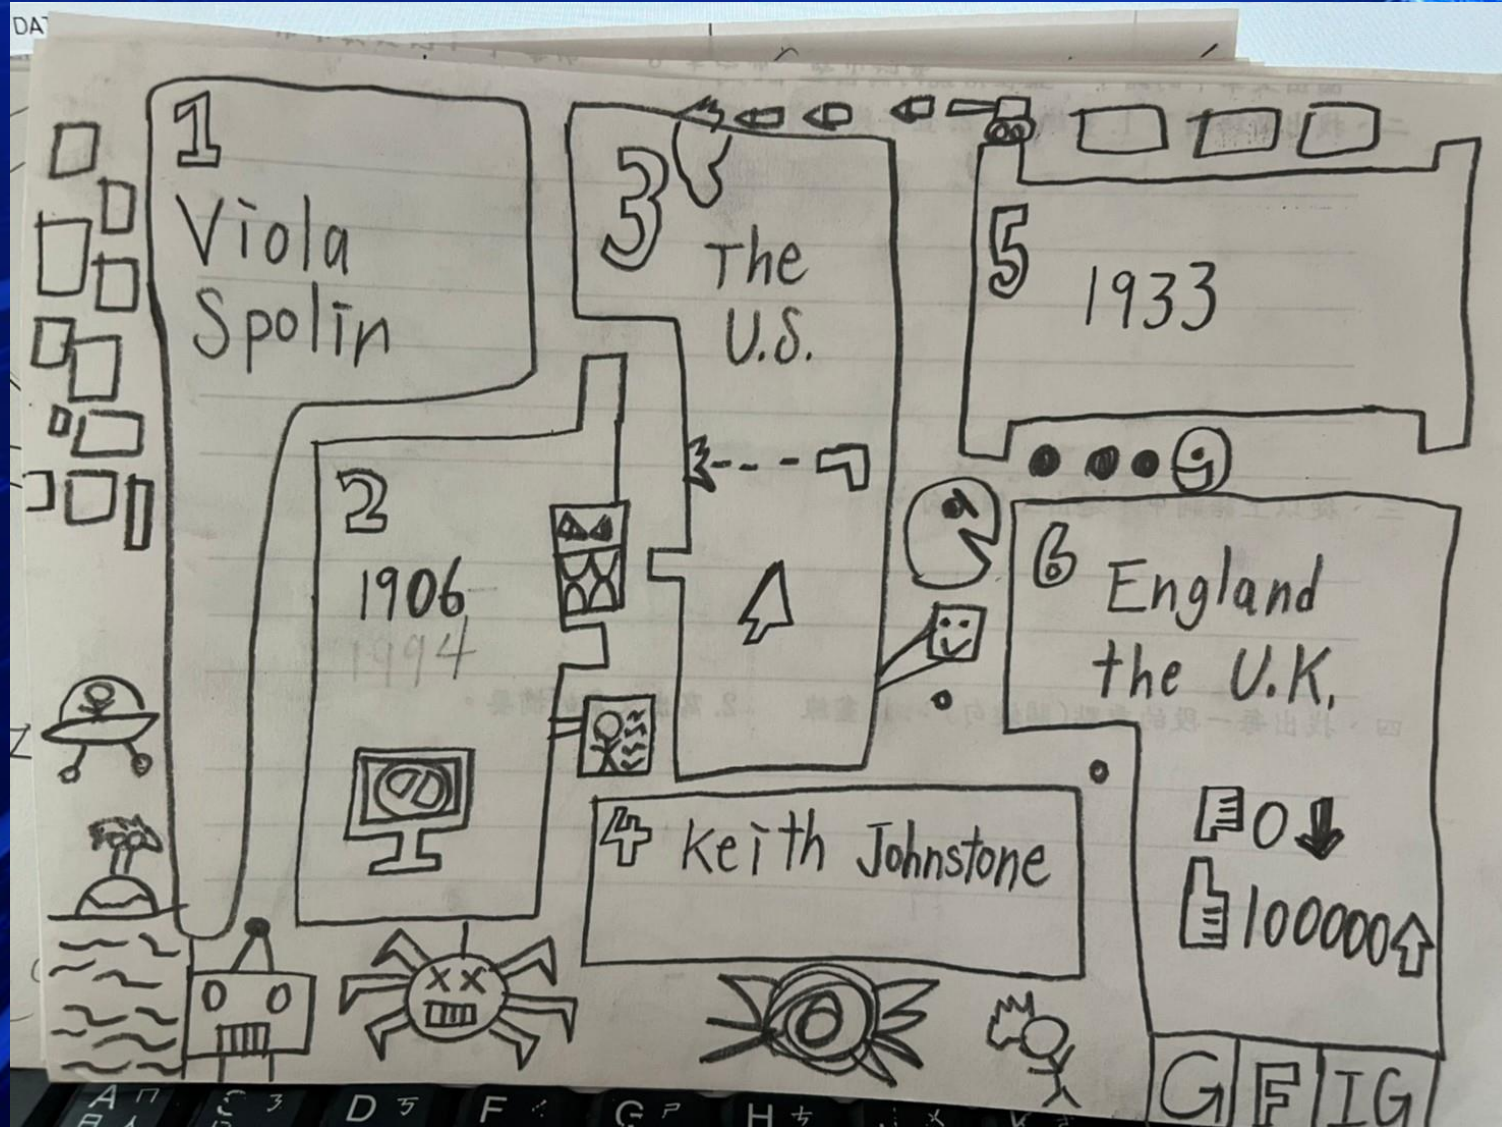 DAT
1
Viola
Spolin
2
1906
1994
3
The
U.S.
4 Keith Johnstone
5
1933
6
England
the U.K.
0
100000
G F IG
A ㄇ
C ㄏ
D ㄎ
F ㄑ
G ㄕ
H ㄘ